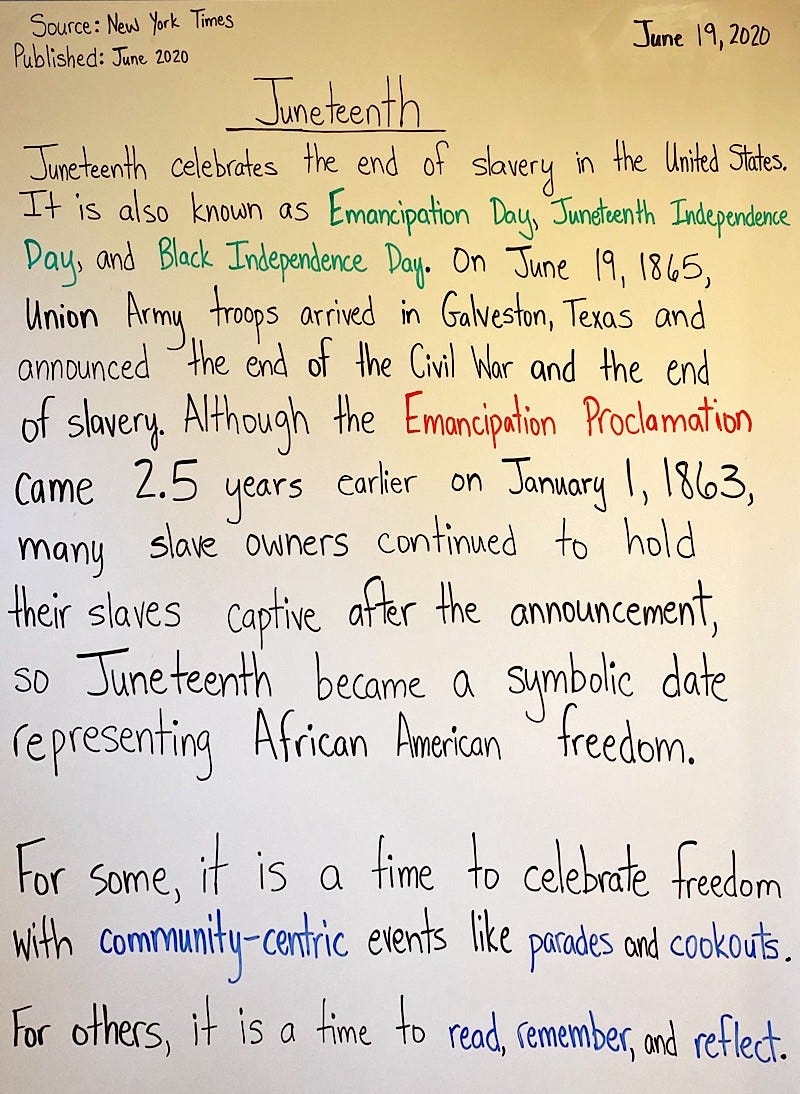 Source: New York Times
Published: June 2020
June 19, 2020
Juneteenth
Juneteenth celebrates the end of slavery in the United States.
It is also known as Emancipation Day, Juneteenth Independence
Day, and Black Independence Day. On June 19, 1865,
Union Army troops arrived in Galveston, Texas and
announced the end of the Civil War and the end
of slavery. Although the Emancipation Proclamation
came 2.5 years earlier on January 1, 1863,
many slave owners continued to hold
their slaves captive after the announcement,
so Juneteenth became a symbolic date
representing African American freedom.
For some, it is a time to celebrate freedom
with community-centric events like parades and cookouts.
For others, it is a time to read, remember, and reflect.